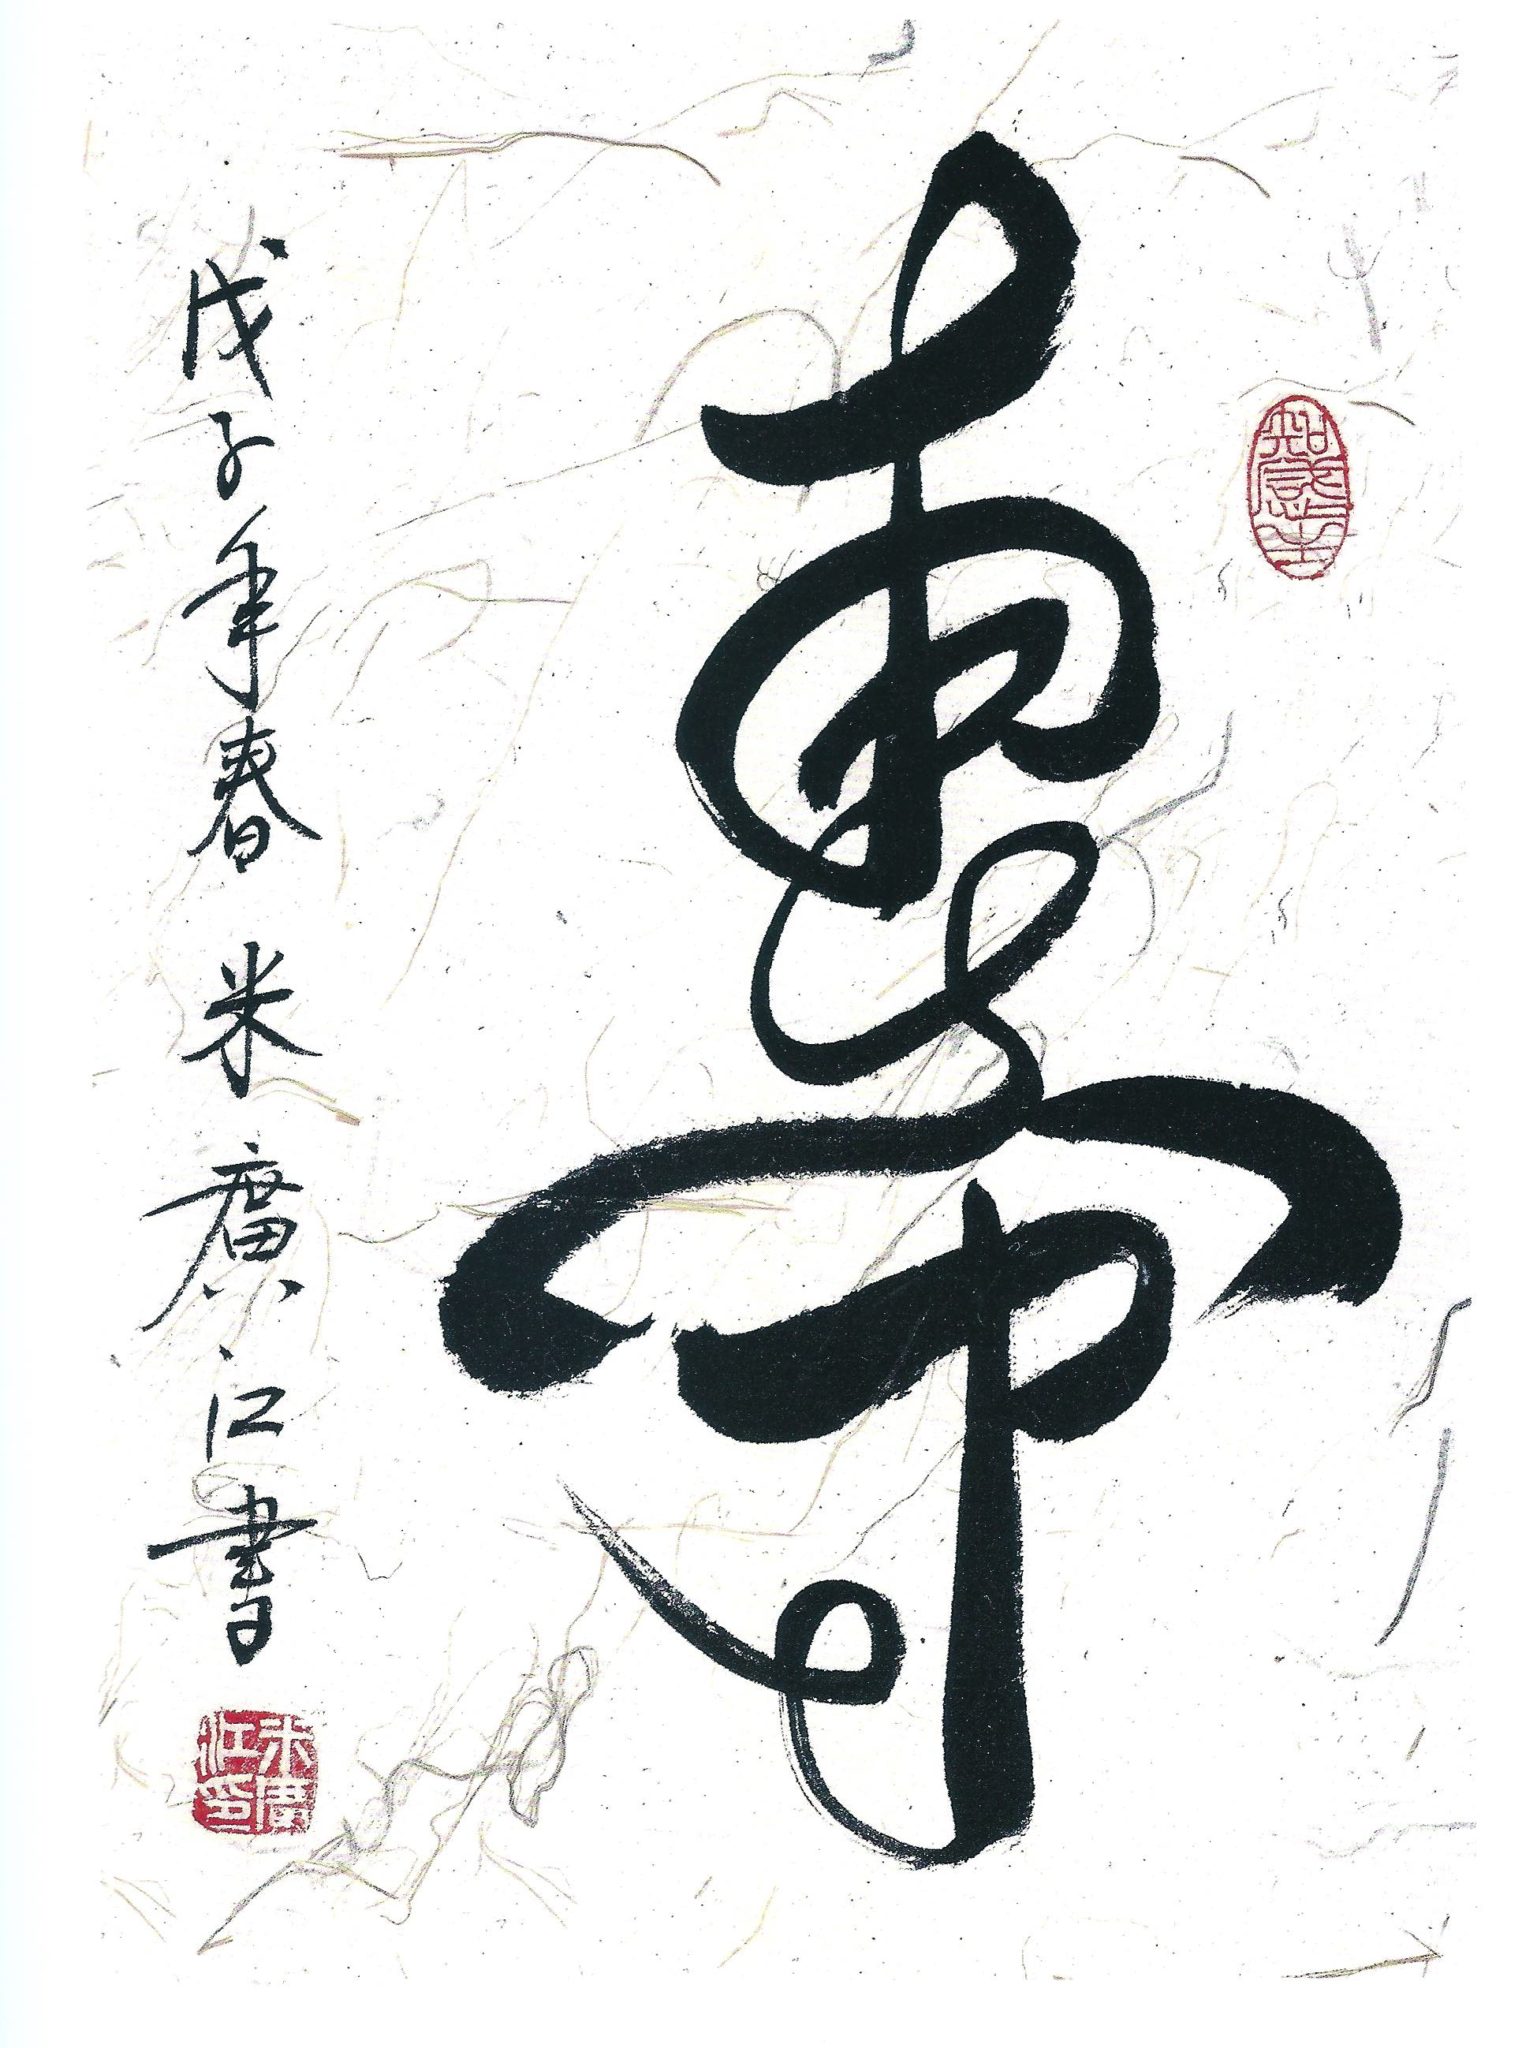 壽
戊子年春 米廣江書
米廣
江印